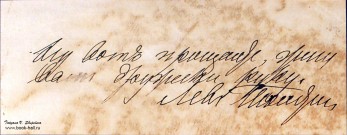 Ну вотъ прощайте, жму
Вамъ дружески руку.
Левъ Толстой
www.book-hall.ru